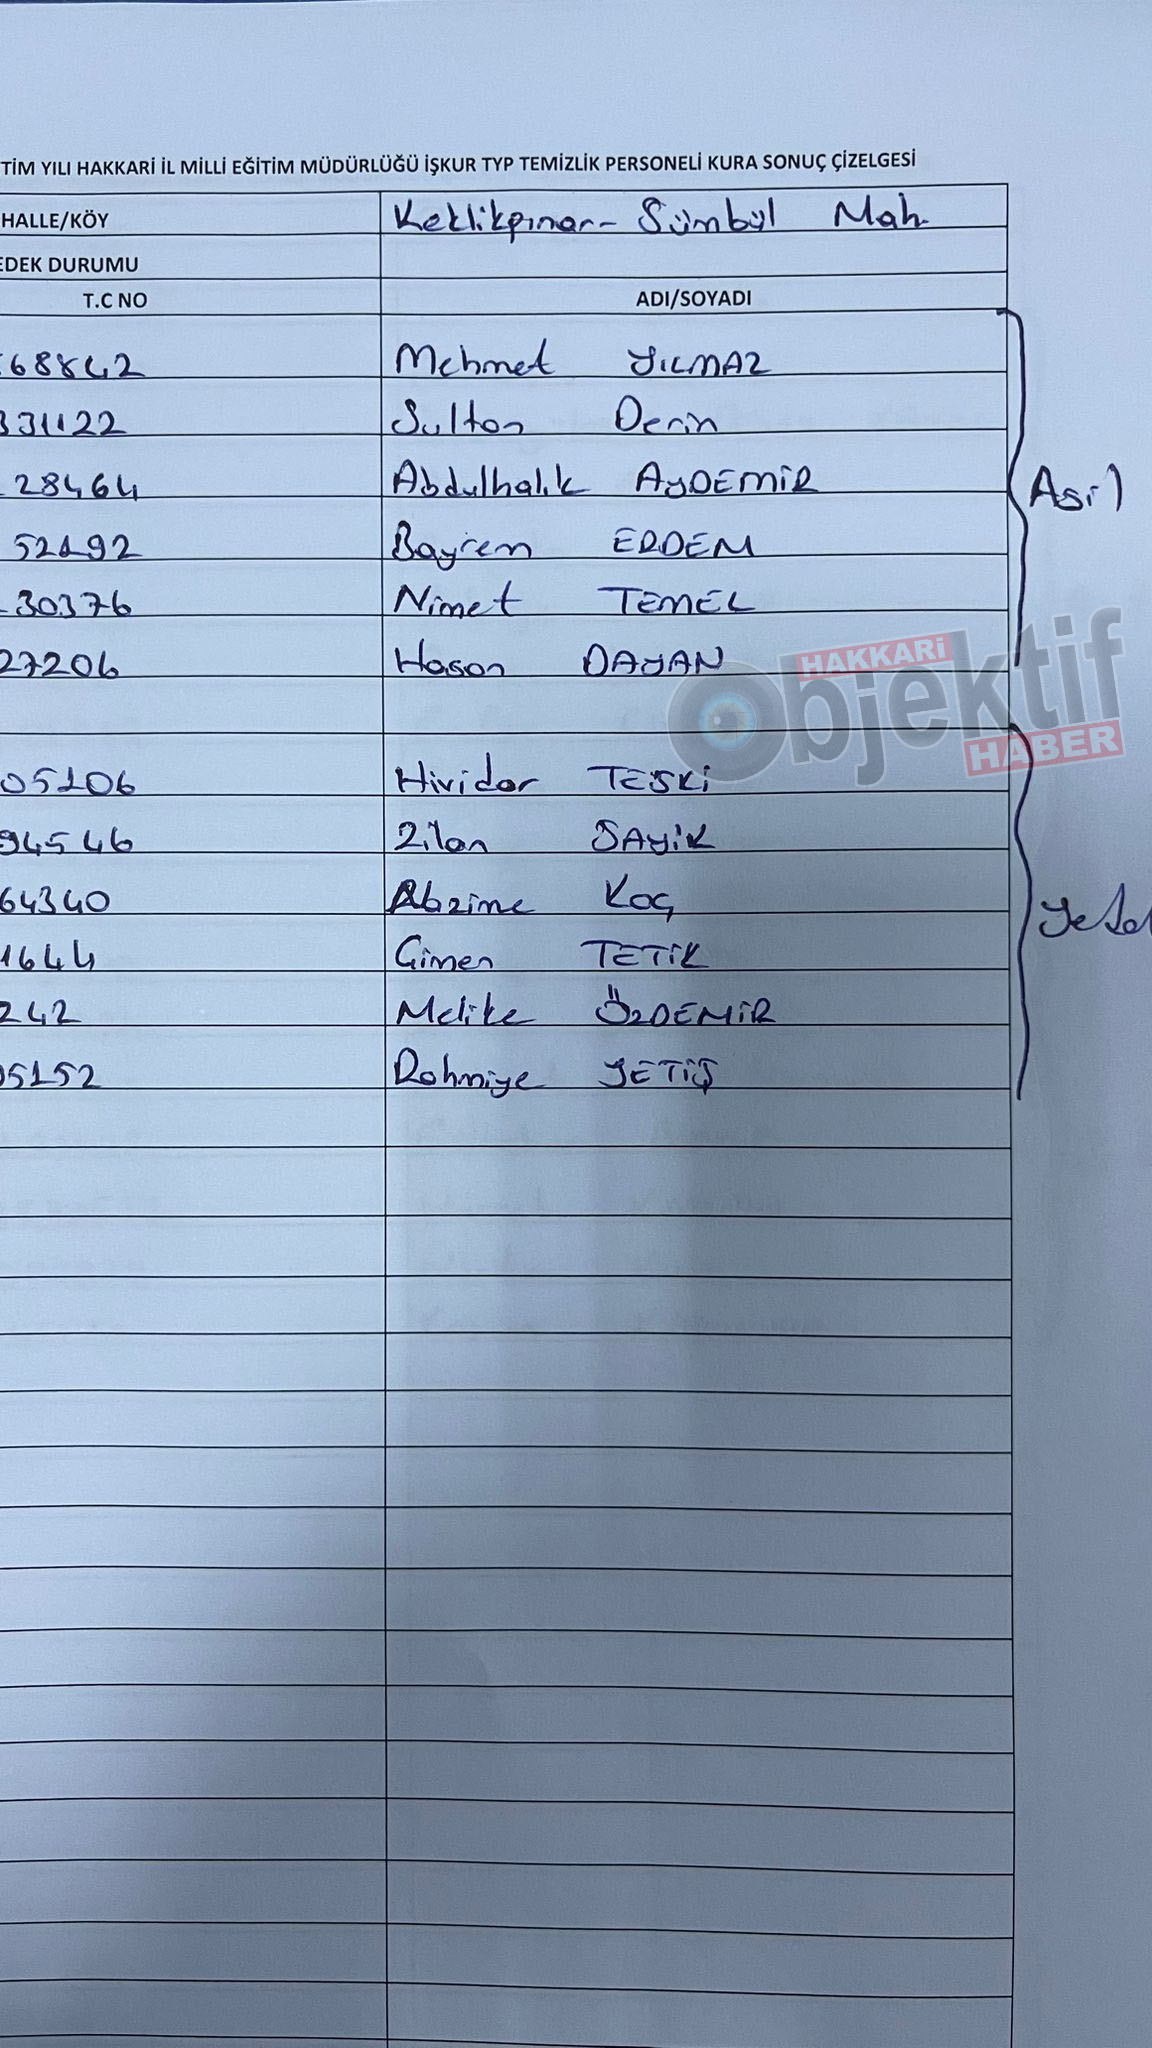 TİM YILI HAKKARİ İL MİLLİ EĞİTİM MÜDÜRLÜĞÜ İŞKUR TYP TEMİZLİK PERSONELİ KURA SONUÇ ÇİZELGESİ
HALLE/KÖY Keklikpınar- Sümbül Mah.
EDEK DURUMU
T.C NO ADI/SOYADI
68842 Mehmet YILMAZ
331122 Sultan Derin
28464 Abdulhalik AYDEMİR
Asil
52192 Bayram ERDEM
30376 Nimet TEMEL
27206 Hasan DAYAN
HAKKARİ Objektif HABER
05106 Hividar TEŞKİ
94546 Zilan SAYİK
64340 Abzime KOÇ
Yede
1644 Çimen TETİK
242 Melike ÖZDEMİR
05152 Rahmiye YETİŞ